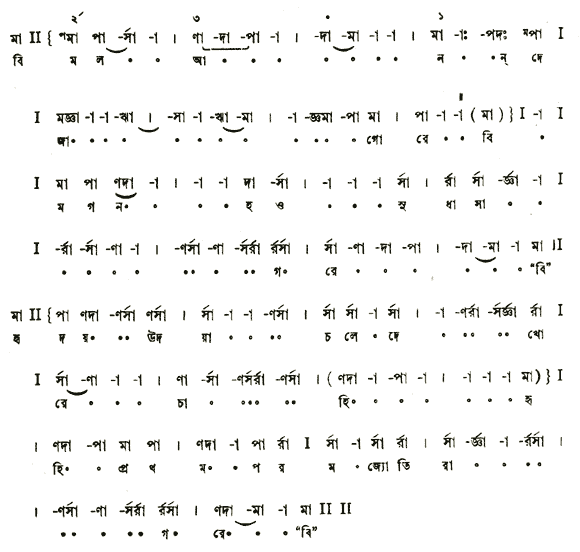 ২´ ৩ • ১
মা II { ণমা পা -র্সা -া । ণা -দা -পা -া । -দা -মা -া -া । মা -াঃ -পদঃ মপা I
বি ম ল • • আ • • • • • • • ন • •ন্ দে
I মজ্ঞা -া -া -ঋা । -সা -া -ঋা -মা । -া -জ্ঞমা -পা মা । পা -া -া (মা) } I -া I
জা• • • • • • • • • •• • গো রে • • বি •
I মা পা ণদা -া । -া -া দা -র্সা । -া -া -া র্সা । র্রা র্সা -র্জ্ঞা -া I
ম গ ন• • • • হ্ ও • • • সু ধা সা • •
I -র্রা -র্সা -ণা -া । -ণর্সা -ণা -র্সর্রা র্রর্সা । র্সা -ণা -দা -পা । -দা -মা -া মা II
• • • • •• • •• গ• রে • • • • • • "বি"
মা II { পা ণদা -ণর্সা ণর্সা । র্সা -া -া -ণর্সা । র্সা র্সা -া র্সা । -া -ণর্রা -র্সর্জ্ঞা র্রা I
হৃ দ য়• •• উদ য়া • • •• চ লে • দে • •• •• খো
I র্সা -ণা -া -া । ণা -র্সা -ণর্সর্রা -ণর্সা । (ণদা -া -পা -া । -া -া -া মা) } I
রে • • • চা • ••• •• হি• • • • • • • হৃ
। ণদা -পা মা পা । ণদা -া পা র্রা I র্সা -া র্সা র্রা । র্সা -র্জ্ঞা -া -র্রর্সা ।
হি• • প্র থ ম• • প র ম • জ্যো তি রা • • ••
। -ণর্সা -ণা -র্সর্রা র্রর্সা । ণদা -মা -া মা II II
•• • •• গ• রে• • • "বি"